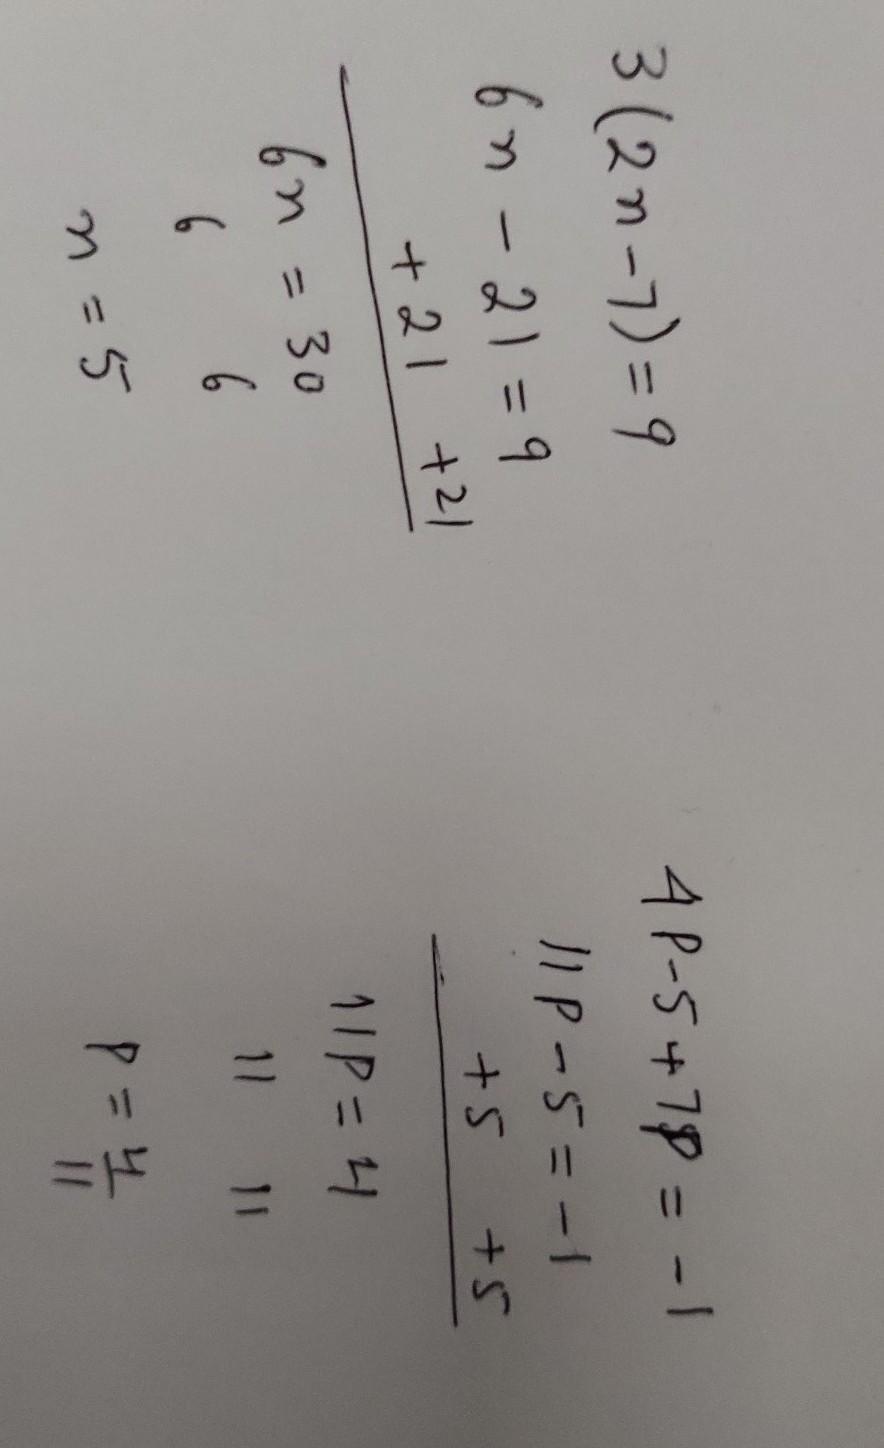 3(2n-7)=9
6n - 21 = 9
+21 +21
6n = 30
6 6
n = 5
4P-5+7P = -1
11P-5 = -1
+5 +5
11P = 4
11 11
P = 4/11